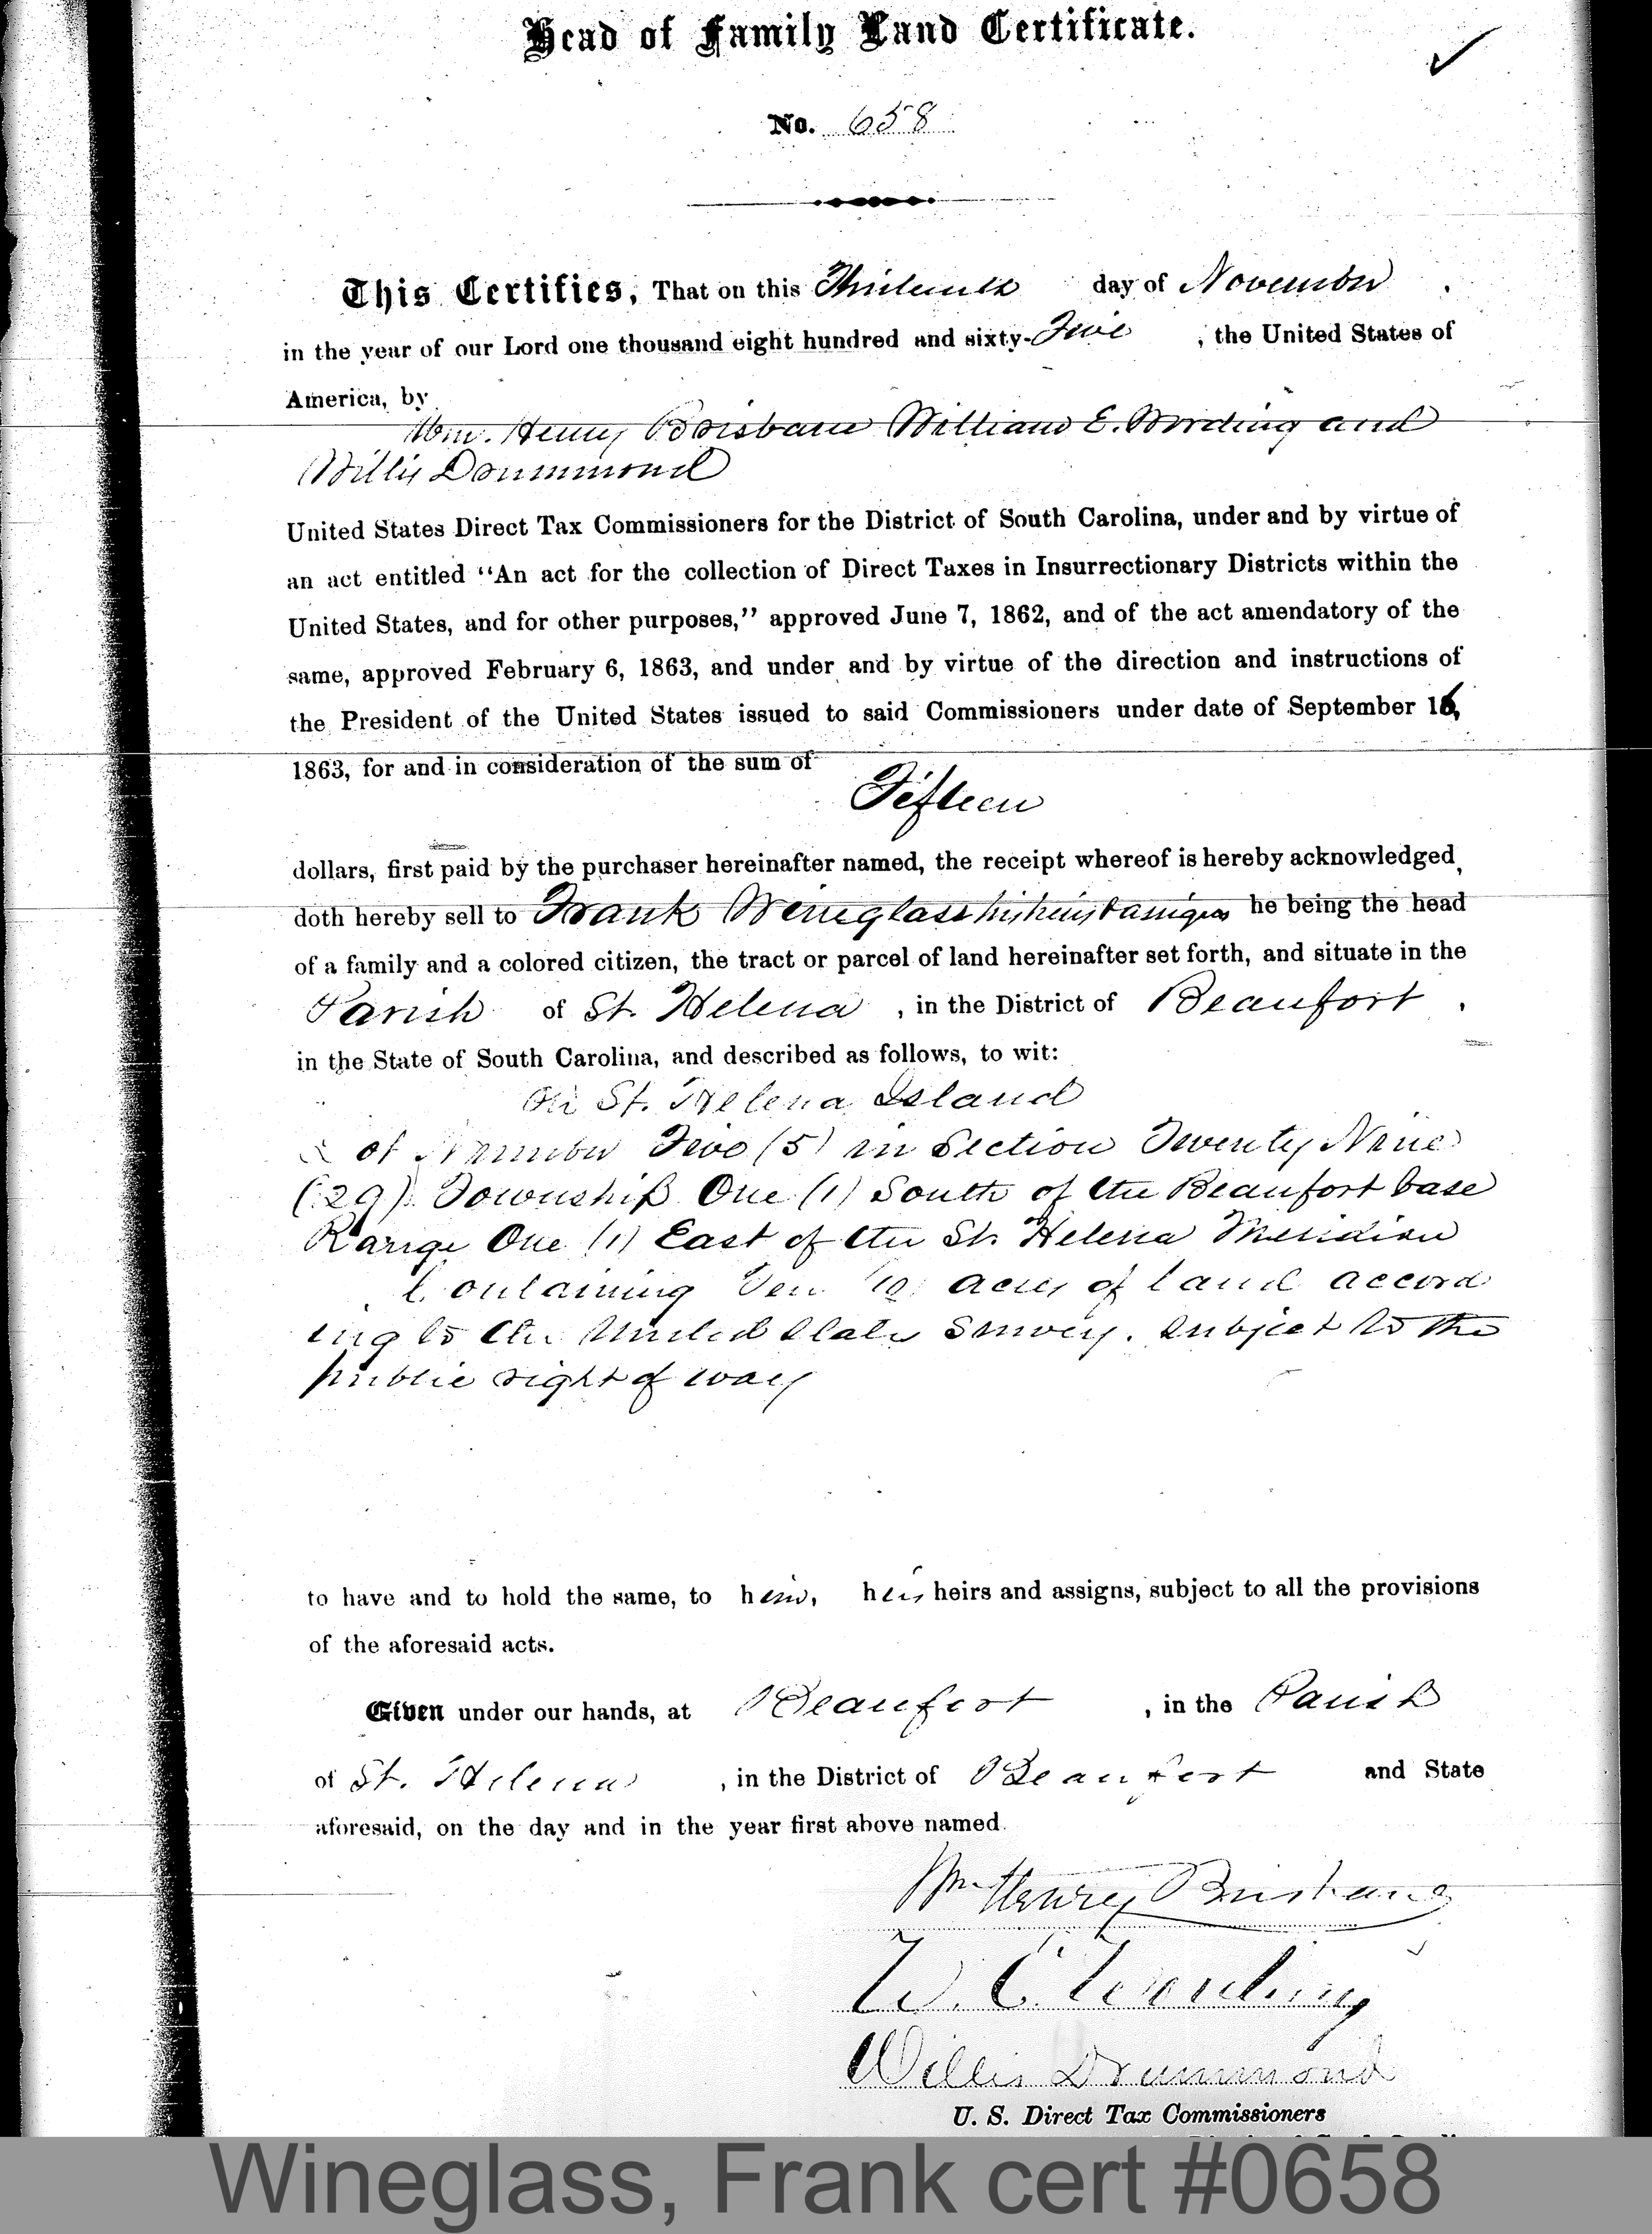 Head of Family Land Certificate.
No. 658
This Certifies, That on this Thirteenth day of November
in the year of our Lord one thousand eight hundred and sixty-Five, the United States of
America, by
Wm. Henry Brisbane William E. Wording and
Willis Drummond
United States Direct Tax Commissioners for the District of South Carolina, under and by virtue of
an act entitled "An act for the collection of Direct Taxes in Insurrectionary Districts within the
United States, and for other purposes," approved June 7, 1862, and of the act amendatory of the
same, approved February 6, 1863, and under and by virtue of the direction and instructions of
the President of the United States issued to said Commissioners under date of September 16,
1863, for and in consideration of the sum of
Fifteen
dollars, first paid by the purchaser hereinafter named, the receipt whereof is hereby acknowledged,
doth hereby sell to Frank Wineglass his heirs & assigns he being the head
of a family and a colored citizen, the tract or parcel of land hereinafter set forth, and situate in the
Parish of St. Helena, in the District of Beaufort
in the State of South Carolina, and described as follows, to wit:
On St. Helena Island
Lot Number Five (5) in Section Twenty Nine
(29) Township One (1) South of the Beaufort base
Range One (1) East of the St. Helena Meridian
Containing Ten (10) acres of land accord
ing to the United States Survey. Subject to the
public right of way
to have and to hold the same, to him, his heirs and assigns, subject to all the provisions
of the aforesaid acts.
Given under our hands, at Beaufort, in the Parish
of St. Helena, in the District of Beaufort and State
aforesaid, on the day and in the year first above named.
Wm Henry Brisbane
W. E. Wording
Willis Drummond
U. S. Direct Tax Commissioners
Wineglass, Frank cert #0658